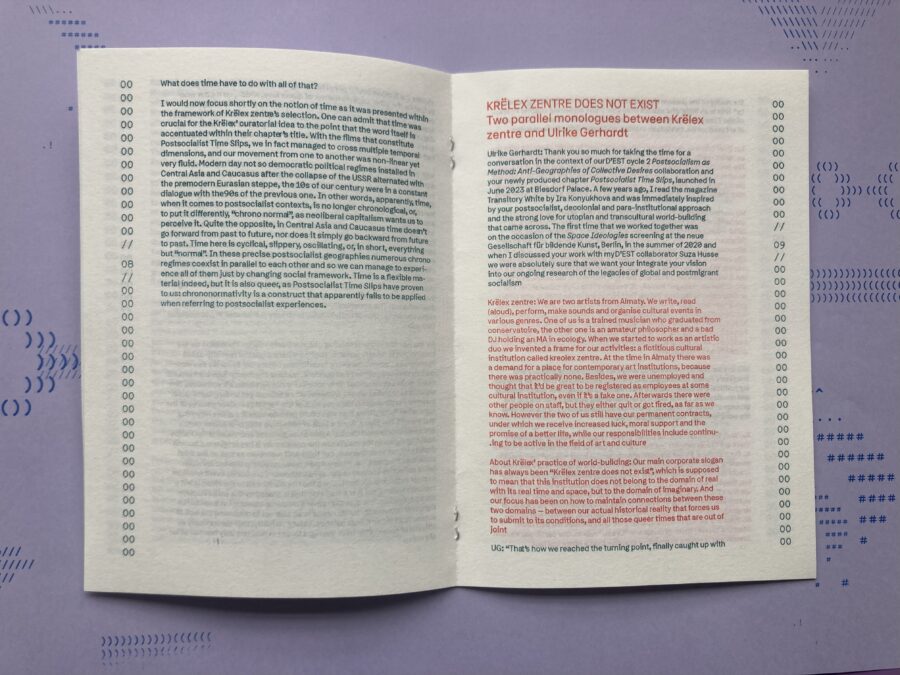 00
00
00
00
00
00
00
00
00
00
00
00
//
08
//
00
00
00
00
00
00
00
00
00
00
00
00
00
00
00
00
00
00
00
00
00
What does time have to do with all of that?
I would now focus shortly on the notion of time as it was presented within
the framework of Krëlex zentre's selection. One can admit that time was
crucial for the Krëlex' curatorial idea to the point that the word itself is
accentuated within their chapter's title. With the films that constitute
Postsocialist Time Slips, we in fact managed to cross multiple temporal
dimensions, and our movement from one to another was non-linear yet
very fluid. Modern day not so democratic political regimes installed in
Central Asia and Caucasus after the collapse of the USSR alternated with
the premodern Eurasian steppe, the 10s of our century were in a constant
dialogue with the90s of the previous one. In other words, apparently, time,
when it comes to postsocialist contexts, is no longer chronological, or,
to put it differently, "chrono normal", as neoliberal capitalism wants us to
perceive it. Quite the opposite, in Central Asia and Caucasus time doesn't
go forward from past to future, nor does it simply go backward from future
to past. Time here is cyclical, slippery, oscillating, or, in short, everything
but "normal". In these precise postsocialist geographies numerous chrono
regimes coexist in parallel to each other and so we can manage to experi-
ence all of them just by changing social framework. Time is a flexible ma-
terial indeed, but it is also queer, as Postsocialist Time Slips have proven
to us: chrononormativity is a construct that apparently fails to be applied
when referring to postsocialist experiences.
KRËLEX ZENTRE DOES NOT EXIST
Two parallel monologues between Krëlex
zentre and Ulrike Gerhardt
Ulrike Gerhardt: Thank you so much for taking the time for a
conversation in the context of ourD'EST cycle 2 Postsocialism as
Method: Anti-Geographies of Collective Desires collaboration and
your newly produced chapter Postsocialist Time Slips, launched in
June 2023 at Biesdorf Palace. A few years ago, I read the magazine
Transitory White by Ira Konyukhova and was immediately inspired
by your postsocialist, decolonial and para-institutional approach
and the strong love for utopian and transcultural world-building
that came across. The first time that we worked together was
on the occasion of the Space Ideologies screening at the neue
Gesellschaft für bildende Kunst, Berlin, in the summer of 2020 and
when I discussed your work with myD'EST collaborator Suza Husse
we were absolutely sure that we want your integrate your vision
into our ongoing research of the legacies of global and postmigrant
socialism
Krëlex zentre: We are two artists from Almaty. We write, read
(aloud), perform, make sounds and organise cultural events in
various genres. One of us is a trained musician who graduated from
conservatoire, the other one is an amateur philosopher and a bad
DJ holding an MA in ecology. When we started to work as an artistic
duo we invented a frame for our activities: a fictitious cultural
institution called kreolex zentre. At the time in Almaty there was
a demand for a place for contemporary art institutions, because
there was practically none. Besides, we were unemployed and
thought that it'd be great to be registered as employees at some
cultural institution, even if it's a fake one. Afterwards there were
other people on staff, but they either quit or got fired, as far as we
know. However the two of us still have our permanent contracts,
under which we receive increased luck, moral support and the
promise of a better life, while our responsibilities include continu-
.ing to be active in the field of art and culture
About Krëlex' practice of world-building: Our main corporate slogan
has always been "Krëlex zentre does not exist", which is supposed
to mean that this institution does not belong to the domain of real
with its real time and space, but to the domain of imaginary. And
our focus has been on how to maintain connections between these
two domains — between our actual historical reality that forces us
to submit to its conditions, and all those queer times that are out of
joint
UG: "That's how we reached the turning point, finally caught up with
00
00
00
00
00
00
00
00
00
//
09
//
00
00
00
00
00
00
00
00
00
00
00
00
00
00
00
00
00
00
00
00
00